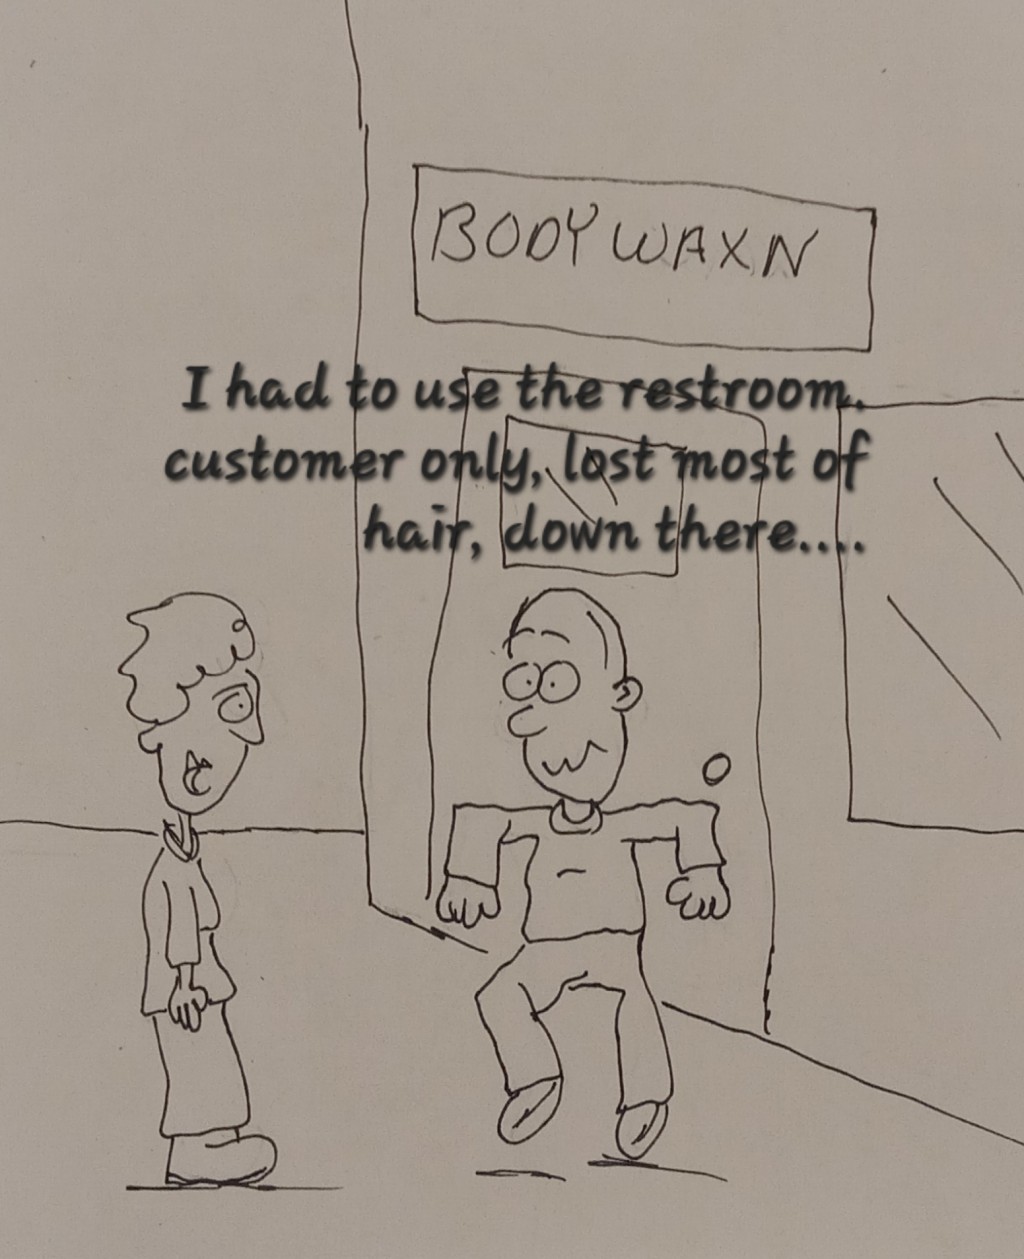 BODY WAXN
I had to use the restroom.
customer only, lost most of
hair, down there....